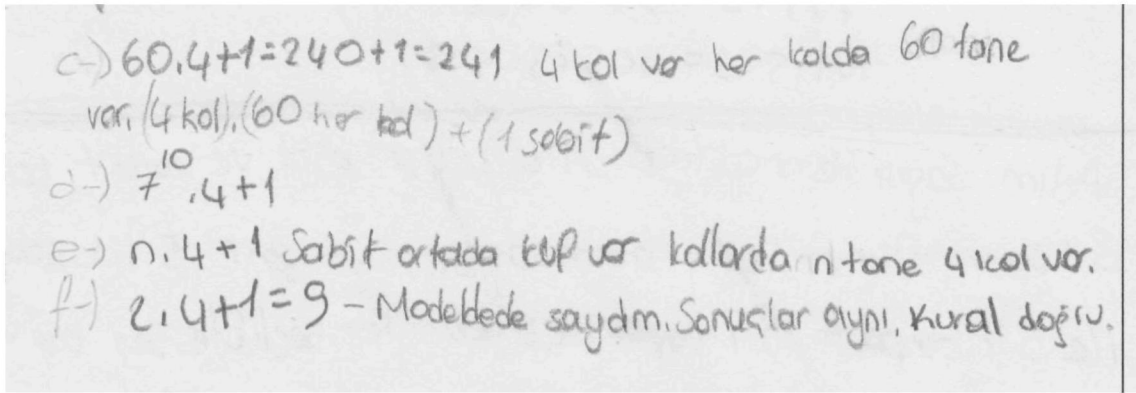 c-) 60.4+1=240+1=241 4 kol var her kolda 60 tane
var. (4 kol).(60 her kol) + (1 sabit)
d-) 7¹⁰.4+1
e-) n.4+1 Sabit ortada küp var kollarda n tane 4 kol var.
f-) 2.4+1=9 - Modeldede saydım. Sonuçlar aynı. Kural doğru.